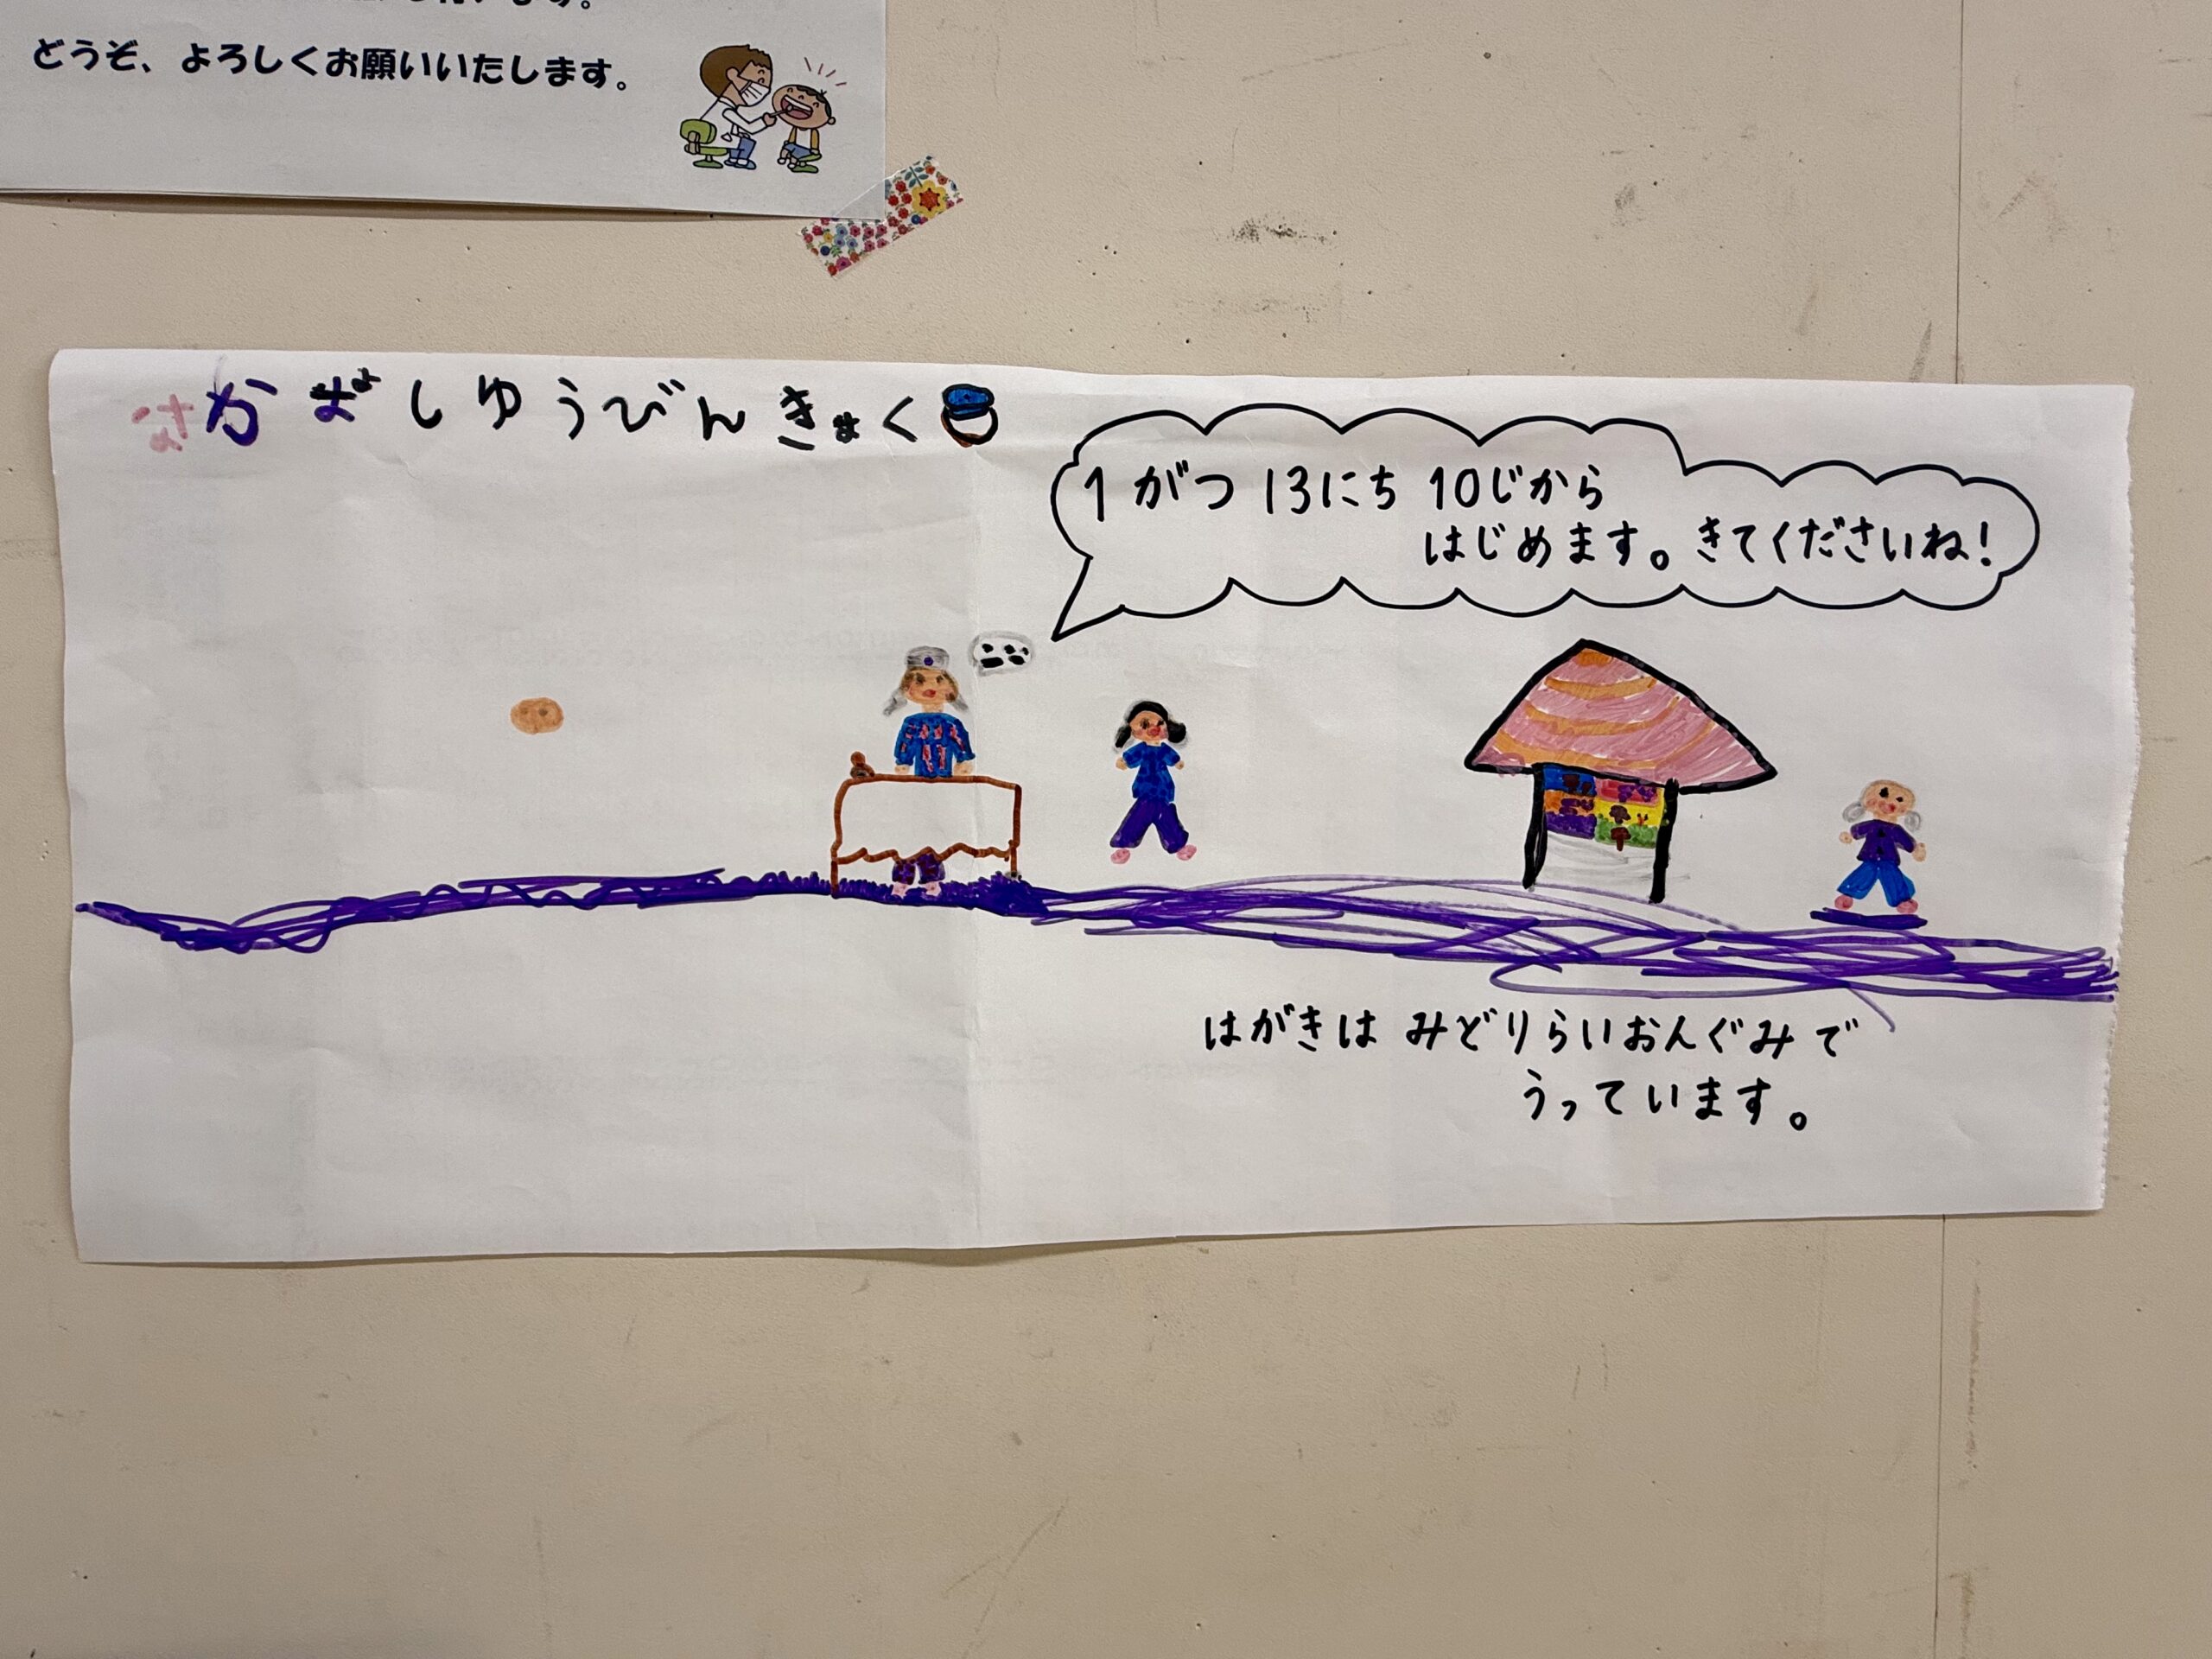 どうぞ、よろしくお願いいたします。
しゆうびんきょく
1がつ 13にち 10じから
はじめます。きてくださいね!
はがきは みどりらいおんぐみで
うっています。